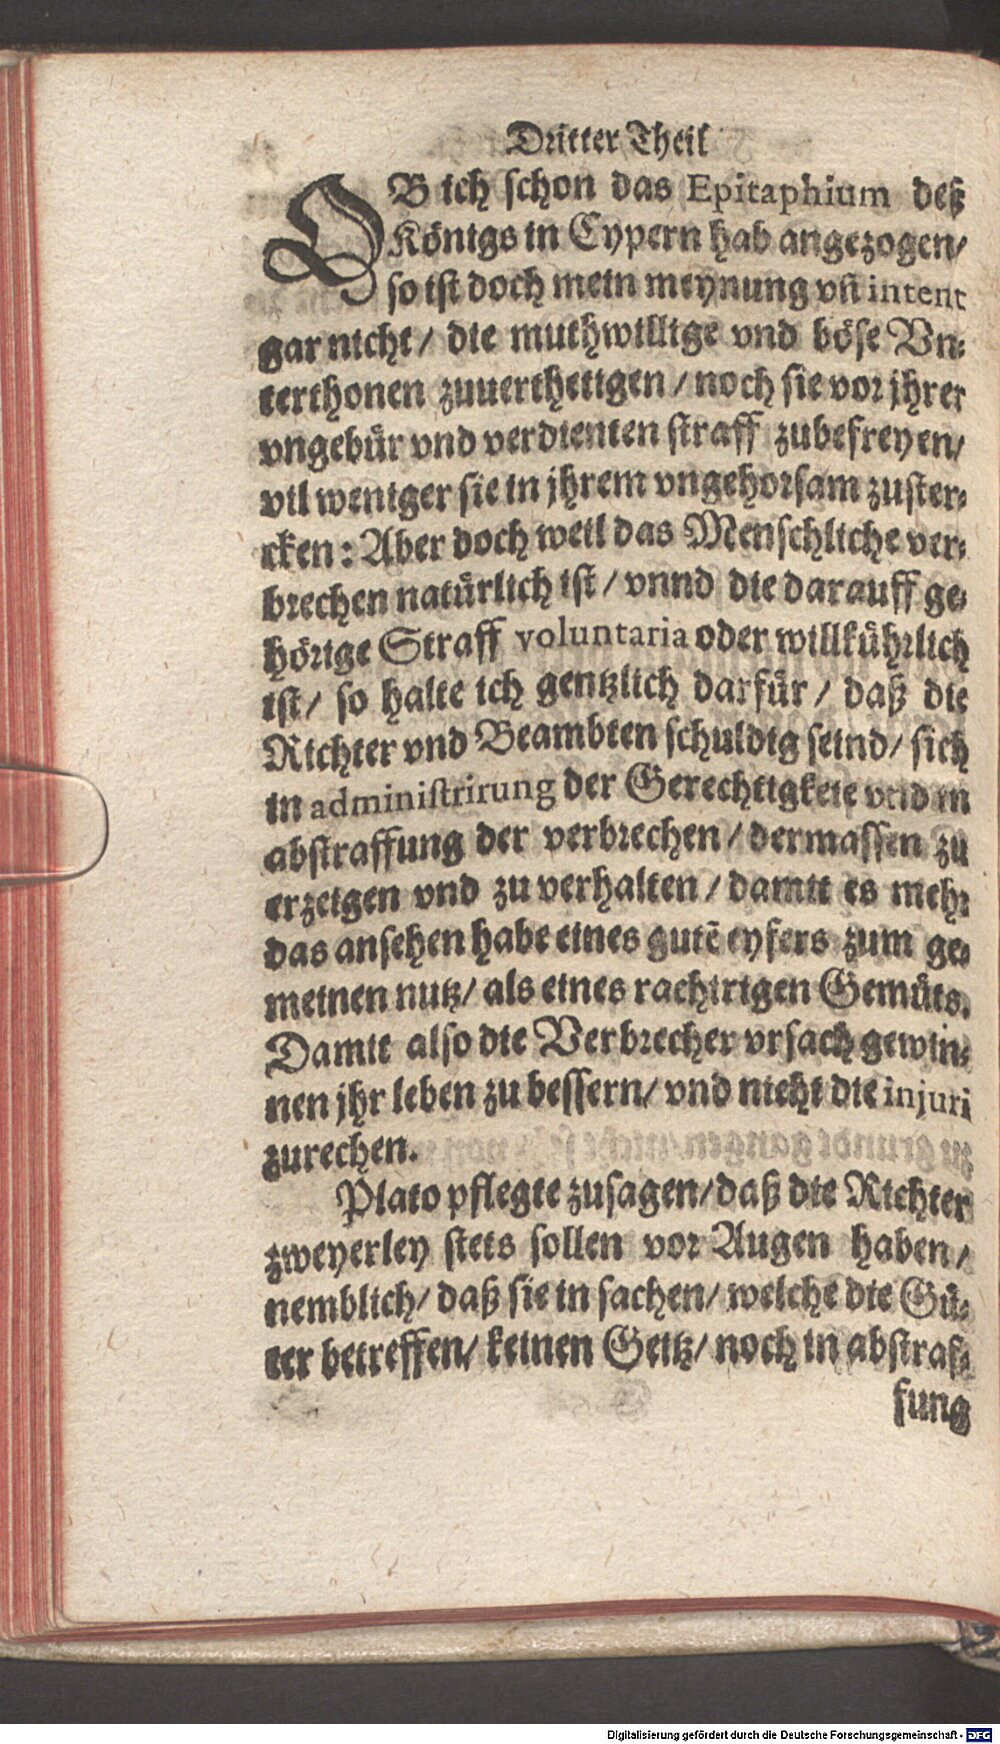 Dritter Theil
OB ich schon das Epitaphium deß
Königs in Cypern hab angezogen/
so ist doch mein meynung vñ intent
gar nicht/ die muthwillige vnd böse Vn-
terthonen zuuertheitigen/ noch sie vor jhrer
vngebür vnd verdienten straff zubefreyen/
vil weniger sie in jhrem vngehorsam zuster-
cken: Aber doch weil das Menschliche ver-
brechen natürlich ist/ vnnd die darauff ge-
hörige Straff voluntaria oder willkührlich
ist/ so halte ich gentzlich darfür/ daß die
Richter vnd Beambten schuldig seind/ sich
in administrirung der Gerechtigkeit vnd in
abstraffung der verbrechen/ dermassen zu
erzeigen vnd zu verhalten/ damit es mehr
das ansehen habe eines gutē eyfers zum ge-
meinen nutz/ als eines rachirigen Gemüts.
Damit also die Verbrecher vrsach gewin-
nen jhr leben zu bessern/ vnd nicht die injuri
zurechen.
Plato pflegte zusagen/ daß die Richter
zweyerley stets sollen vor Augen haben/
nemblich/ daß sie in sachen/ welche die Gü-
ter betreffen/ keinen Geitz/ noch in abstraf-
fung
Digitalisierung gefördert durch die Deutsche Forschungsgemeinschaft - DFG